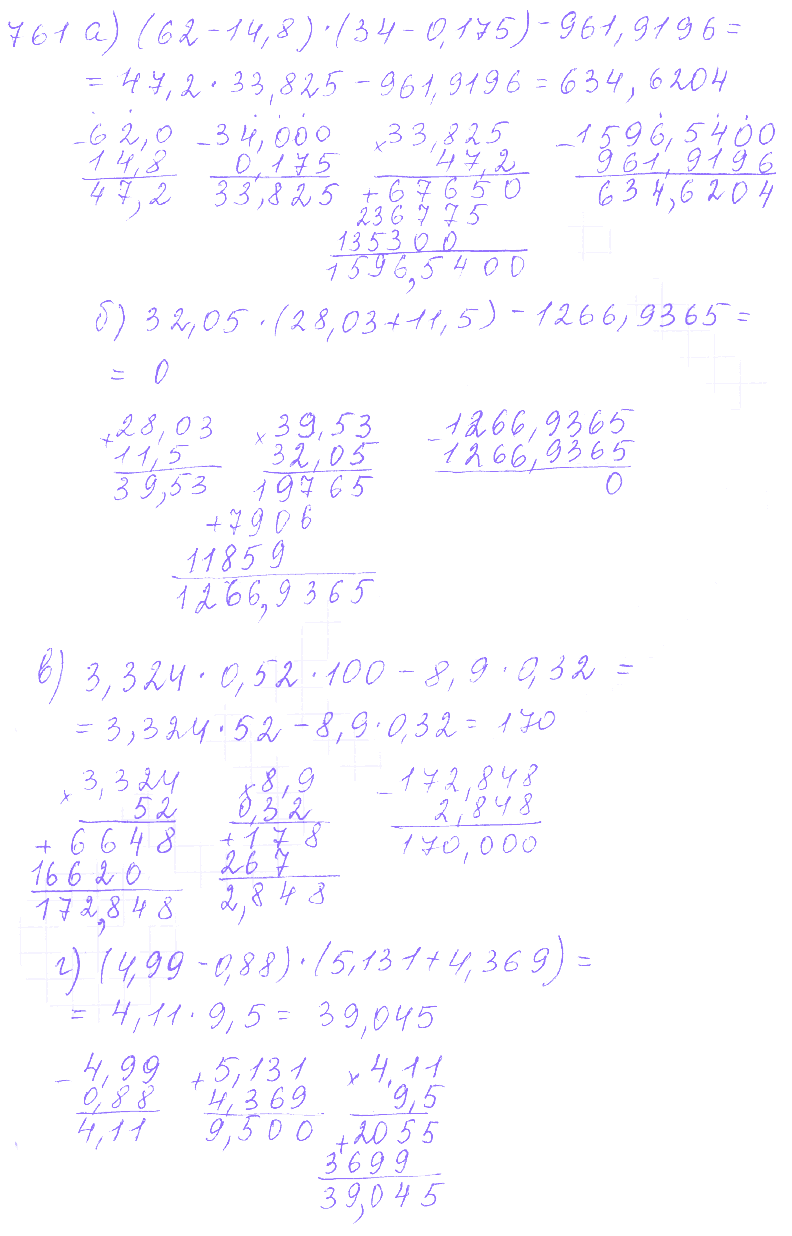 761 а) (62-14,8)·(34-0,175)-961,9196=
= 47,2·33,825-961,9196=634,6204
-62,0 -34,000 ×33,825 -1596,5400
14,8 0,175 47,2 961,9196
47,2 33,825 +67650 634,6204
236775
135300
1596,5400
б) 32,05·(28,03+11,5)-1266,9365=
= 0
+28,03 ×39,53 -1266,9365
11,5 32,05 1266,9365
39,53 19765 0
+7906
11859
1266,9365
в) 3,324·0,52·100-8,9·0,32=
=3,324·52-8,9·0,32=170
×3,324 ×8,9 -172,848
52 0,32 2,848
+6648 +178 170,000
16620 267
172,848 2,848
г) (4,99-0,88)·(5,131+4,369)=
= 4,11·9,5= 39,045
-4,99 +5,131 ×4,11
0,88 4,369 9,5
4,11 9,500 +2055
3699
39,045